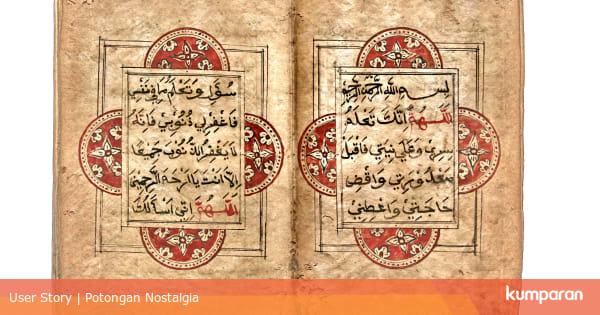 بسم الله الرحمن الرحيم
اللهم انك تعلم
سري وعلى نيتي فاقبل
معذورتي واقض
حاجتي واعطني
سؤلي وتعلم ما في نفسي
فاغفر لي ذنوبي فانه
لا يغفر الذنوب جميعا
الا انت يا ارحم الرحمين
اللهم اني اسألك
User Story | Potongan Nostalgia
kumparan